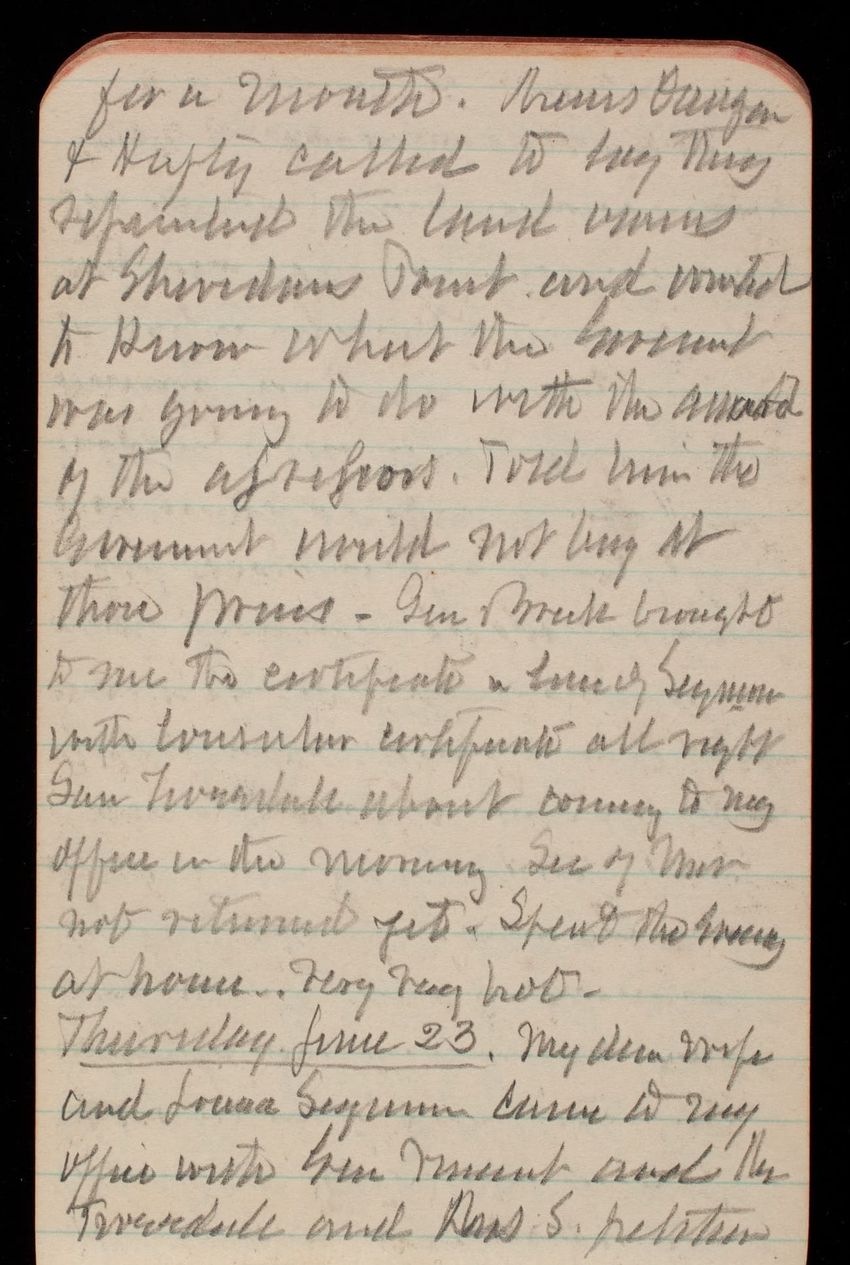 for a month.
& Hufty called to say they
represented the land owners
at Sheridans Point and wanted
to know what the Goverment
was going to do with the award
of the assessors. Told him the
Goverment would not buy at
those prices - Gen Breck brought
to me the certificate Seymour
with Consular certificate all right
Gen Truesdale about coming to my
office in the morning Sec of War
not returned yet. Spent the Evening
at home.. very very hot -
Thursday June 23. My dear wife
and Louisa Seymour came to my
office with Gen Vincent and Mr
Truesdale and S. petition